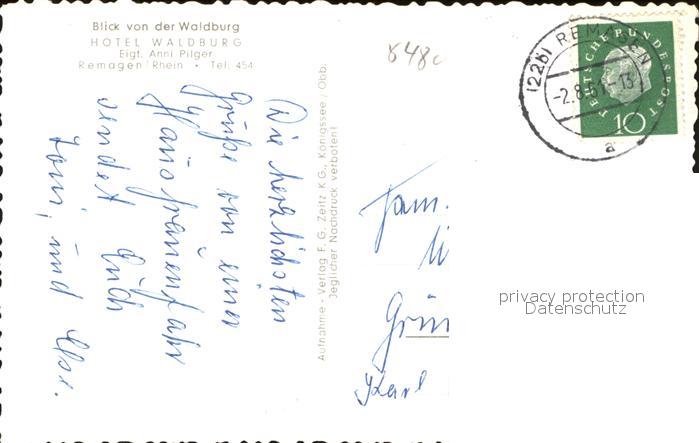 Blick von der Waldburg
HOTEL WALDBURG
Eigt. Anni Pilger
Remagen/Rhein • Tel. 454
848
(22b) REMAGEN
-2.8.61-13
a
DEUTSCHE BUNDESPOST
10
Die herzlichsten
Grüße von einer
Hausfrauenfahrt
sendet Euch
Toni, und Else.
Aufnahme - Verlag F. G. Zeitz K G., Königssee / Obb.
Jeglicher Nachdruck verboten!
Fam.
Grün
Karl
privacy protection
Datenschutz